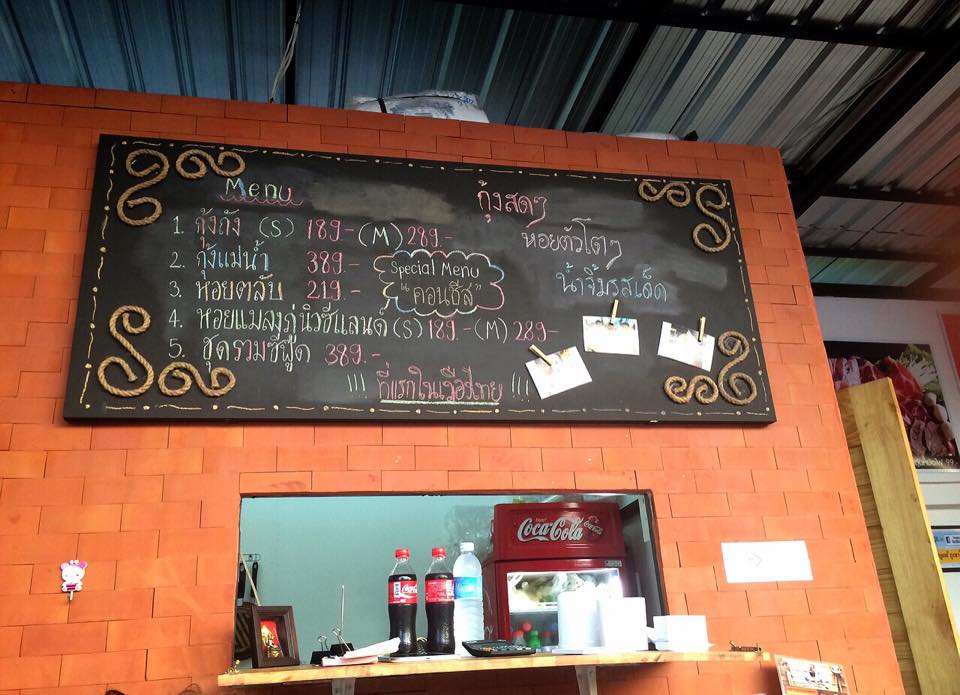 Menu
1. กุ้งถัง (S) 189.- (M) 289.-
2. กุ้งแม่น้ำ 389.-
3. หอยตลับ 219.-
4. หอยแมลงภู่นิวซีแลนด์ (S) 189.- (M) 289.-
5. ชุดรวมซีฟู้ด 389.-
!!! ที่แรกในเมืองไทย !!!
Special Menu
"คอนชีส"
กุ้งสดๆ
หอยตัวโตๆ
น้ำจิ้มรสเด็ด
Coca-Cola